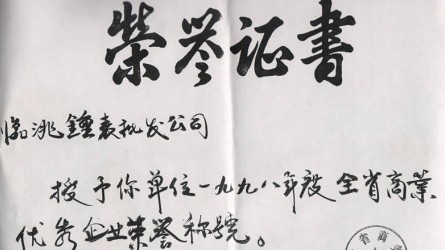 榮誉证書
临洮鍾表批发公司
授予你單位一九九八年度全省商業
优秀企业荣誉称號。
省商